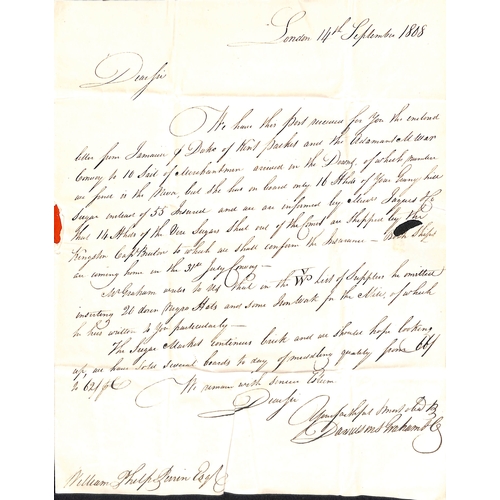 London 14th September 1808
Dear Sir
We have this Post received for You the enclosed
letter from Jamaica Duke of Kent Packet and the Adamant M. War
Convoy to 10 Sail of Merchantmen arrived in the Downs, of which number
as fired is the but she has on board only 16 Hhds of Your Penny
Sugar instead of 55 Insured and we are informed by Messrs Jaques & Co
that 14 Hhds of the Vere Sugars that out of the are Shipped by the
Kingston Capt to which we shall confirm the Insurance — Both Ships
are coming home in the 31st July Convoy —
Mr Graham writes to Us that in the list of Supplies he omitted
inserting 20 dozen Negro Hats and some Iron Work for the Mill, of which
he has written to You particularly —
The Sugar Market continues brisk and we should hope looking
up, we have Sold several boards to day of middling quality from 66/
to 62/ p C
We remain with sincere Esteem
Dear Sir
Your faithful
Davidsons Graham & Co
William Philp Perrin Esqr